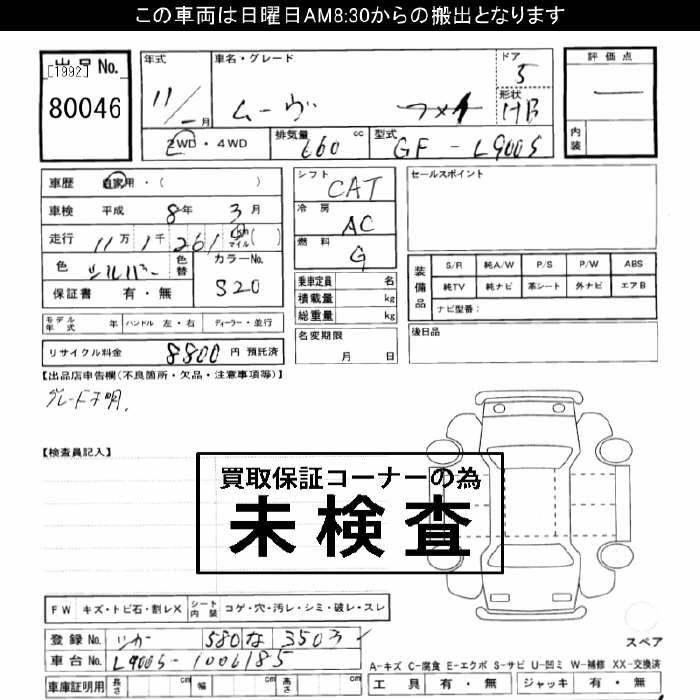 この車両は日曜日AM8:30からの搬出となります
出品No.
[1992]
80046
年式
11/ 月
車名・グレード
ムーヴ
ドア
5
形状
HB
評価点
内装
2WD・4WD
排気量 660 cc
型式 GF-L900S
車歴 自家用・( )
車検 平成 8年 3月
走行 11万1千261 km マイル( )
色 シルバー
色替
カラーNo.
S20
保証書 有・無
モデル年式 年 ハンドル 左・右 ディーラー・並行
リサイクル料金 8800円 預託済
シフト
CAT
冷房
AC
燃料
G
乗車定員 名
積載量 kg
総重量 kg
名変期限
月 日
セールスポイント
装備品
S/R 純A/W P/S P/W ABS
純TV 純ナビ 革シート 外ナビ エアB
ナビ型番:
後日品
【出品店申告欄(不良箇所・欠品・注意事項等)】
グレード不明.
【検査員記入】
買取保証コーナーの為
未検査
FW キズ・トビ石・割レX シート内装 コゲ・穴・汚レ・シミ・破レ・スレ
登録No. 580 な 3503
車台No. L900S-1006185
車庫証明用 長さ cm 幅 cm 高さ cm
スペア
A-キズ C-腐食 E-エクボ S-サビ U-凹ミ W-補修 XX-交換済
工具 有・無 ジャッキ 有・無